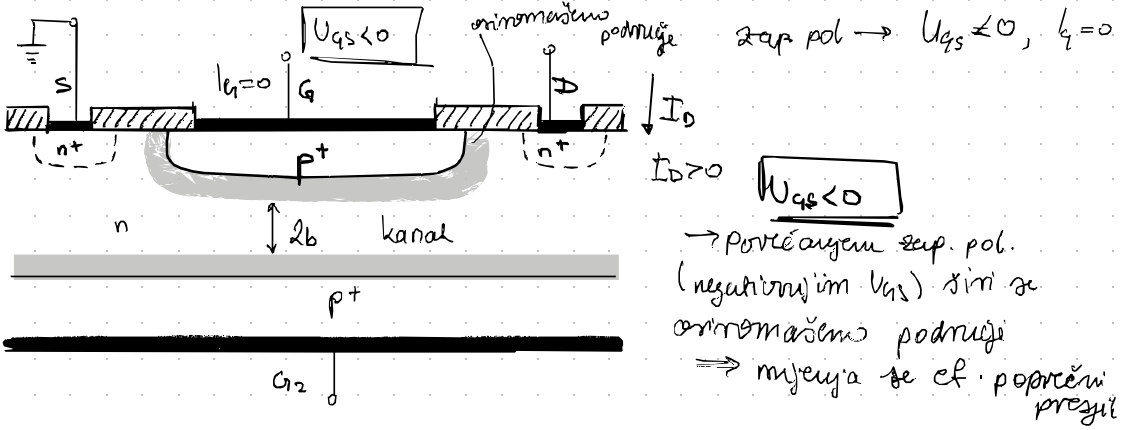 U_GS<0
osiromašeno
područje
zap pol → U_GS ≤ 0, I_G=0
S
I_G=0
G
D
I_D
n+
p+
n+
I_D>0
U_GS<0
n
2b
kanal
→ povećanjem zap. pol.
(negativnijim U_GS) širi se
p+
osiromašeno područje
⇒ mijenja se ef. poprečni
presjek
G2